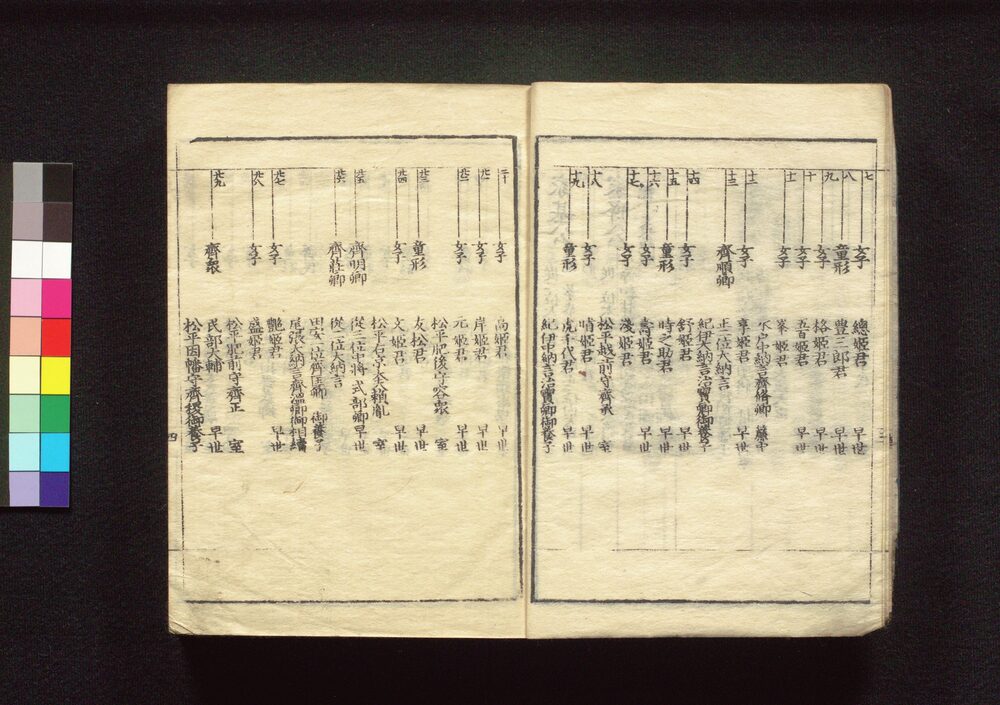 七
女子
總姫君 早世
八
童形
豐三郎君 早世
九
女子
格姫君 早世
十
女子
五百姫君 早世
十一
女子
峯姫君
水戸中納言齊脩卿 簾中
十二
女子
亨姫君 早世
十三
齊順卿
正二位大納言
紀伊大納言治寶卿御養子
十四
女子
舒姫君 早世
十五
童形
時之助君 早世
十六
女子
壽姫君 早世
十七
女子
淺姫君
松平越前守齊承 室
十八
女子
晴姫君 早世
十九
童形
虎千代君 早世
紀伊中納言治寶卿御養子
二十
女子
高姫君 早世
廿一
女子
岸姫君 早世
廿二
女子
元姫君
松平肥後守容衆 室
廿三
童形
友松君 早世
廿四
女子
文姫君
松平右京大夫頼胤 室
廿五
齊明卿
從三位中將式部卿 早世
廿六
齊莊卿
從二位大納言
田安一位齊匡卿 御養子
尾張大納言齊溫卿御相續
廿七
女子
艶姫君 早世
廿八
女子
盛姫君
松平肥前守齊正 室
廿九
齊衆
民部大輔 早世
松平因幡守齊稷御養子
四